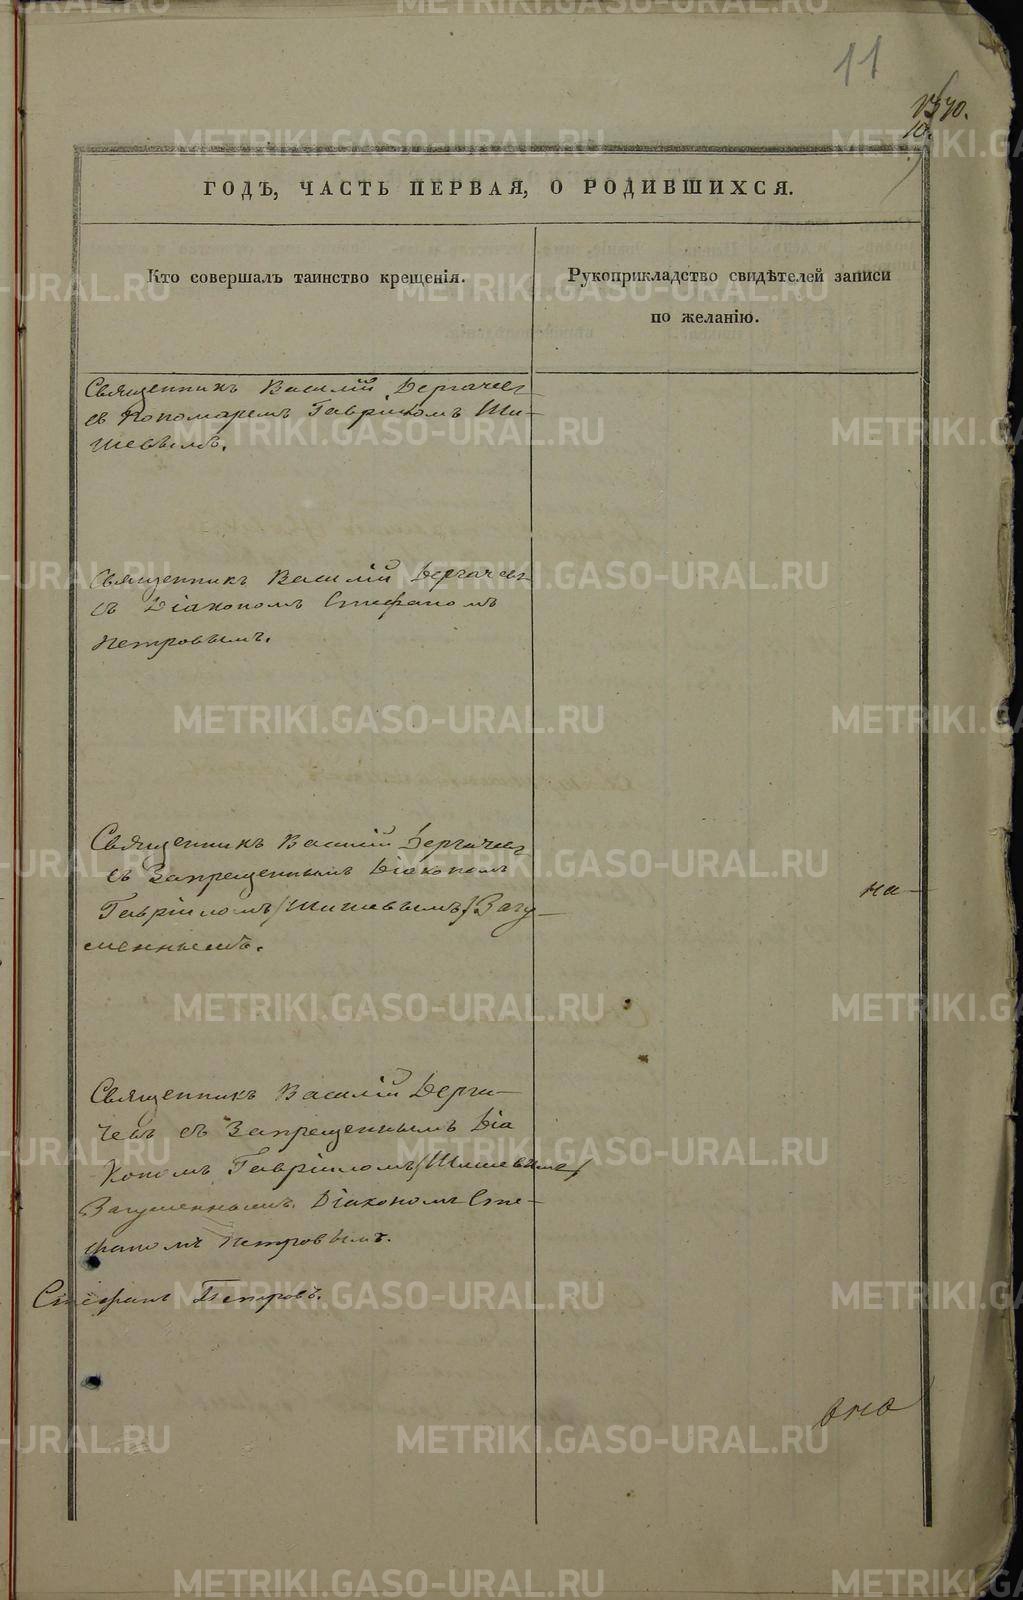 11
10.
ГОДЪ, ЧАСТЬ ПЕРВАЯ, О РОДИВШИХСЯ.
Кто совершалъ таинство крещенія.
Рукоприкладство свидѣтелей записи
по желанію.
Священникъ Василій Дергачев
съ Пономаремъ Гавріиломъ Ши-
шевымъ.
Священникъ Василій Дергачевъ
съ Діакономъ Стефаномъ
Петровымъ.
Священникъ Василій Дергачев
съ Запрещеннымъ Діаконом
Гавріиломъ/Шишевымъ/Загу-
меннымъ.
на-
Священникъ Василій Дерга-
чевъ съ Запрещеннымъ Діа
кономъ Гавріиломъ/Шишевымъ/
Загуменнымъ. Діакономъ Сте-
фаномъ Петровымъ.
Стефанъ Петровъ.
METRIKI.GASO-URAL.RU